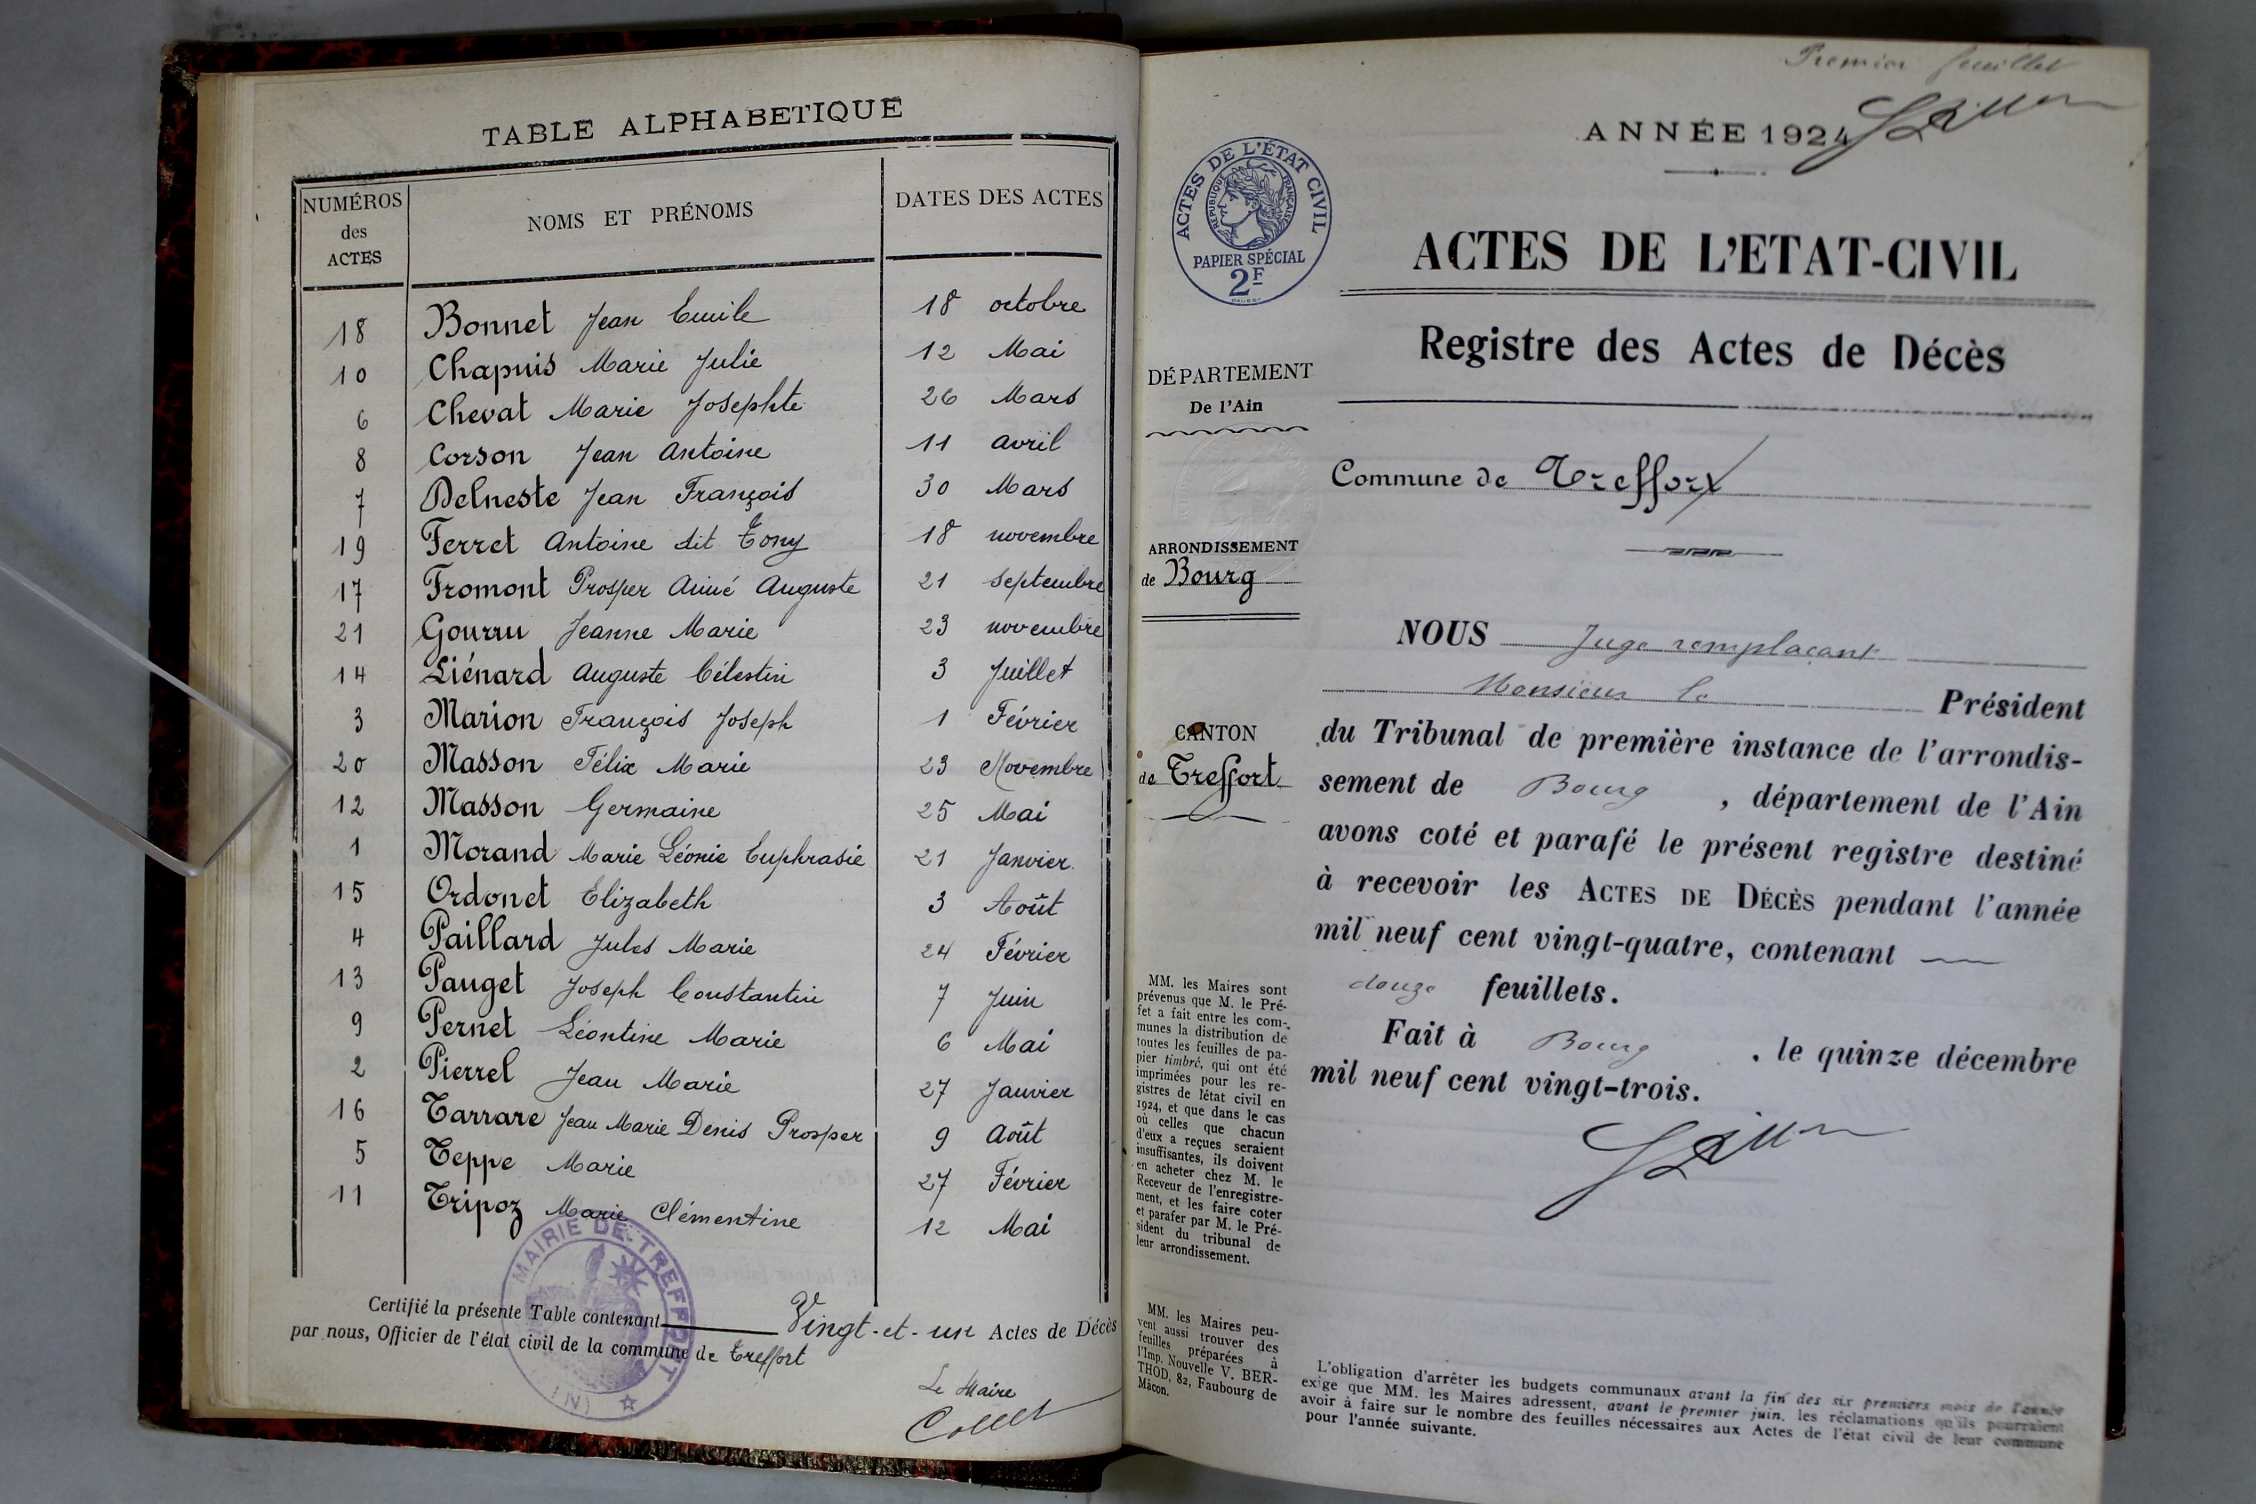 TABLE ALPHABETIQUE
NUMÉROS des ACTES
NOMS ET PRÉNOMS
DATES DES ACTES
18 Bonnet Jean Emile 18 octobre
10 Chapuis Marie Julie 12 Mai
6 Chevat Marie Josephte 26 Mars
8 Corson Jean Antoine 11 avril
7 Delneste Jean François 30 Mars
19 Ferret Antoine dit Tony 18 novembre
17 Fromont Prosper Aimé Auguste 21 septembre
21 Gourru Jeanne Marie 23 novembre
14 Liénard Auguste Célestin 3 Juillet
3 Marion François Joseph 1 Février
20 Masson Félix Marie 23 Novembre
12 Masson Germaine 25 Mai
1 Morand Marie Léonie Euphrasie 21 Janvier
15 Ordonet Elizabeth 3 Août
4 Paillard Jules Marie 24 Février
13 Pauget Joseph Constantin 7 Juin
9 Pernet Léontine Marie 6 Mai
2 Pierrel Jean Marie 27 Janvier
16 Tarrare Jean Marie Denis Prosper 9 Août
5 Teppe Marie 27 Février
11 Tripoz Marie Clémentine 12 Mai
MAIRIE DE TREFFORT
(AIN)
Certifié la présente Table contenant Vingt-et-un Actes de Décès
par nous, Officier de l'état civil de la commune de Treffort
Le Maire
Premier feuillet
ANNÉE 1924
ACTES DE L'ÉTAT CIVIL
RÉPUBLIQUE FRANÇAISE
PAPIER SPÉCIAL
2F
ACTES DE L'ETAT-CIVIL
Registre des Actes de Décès
DÉPARTEMENT
De l'Ain
Commune de Treffort
ARRONDISSEMENT
de Bourg
CANTON
de Treffort
NOUS Juge remplaçant
Monsieur le Président
du Tribunal de première instance de l'arrondis-
sement de Bourg, département de l'Ain
avons coté et parafé le présent registre destiné
à recevoir les ACTES DE DÉCÈS pendant l'année
mil neuf cent vingt-quatre, contenant
douze feuillets.
Fait à Bourg, le quinze décembre
mil neuf cent vingt-trois.
MM. les Maires sont
prévenus que M. le Pré-
fet a fait entre les com-
munes la distribution de
toutes les feuilles de pa-
pier timbré, qui ont été
imprimées pour les re-
gistres de l'état civil en
1924, et que dans le cas
où celles que chacun
d'eux a reçues seraient
insuffisantes, ils doivent
en acheter chez M. le
Receveur de l'enregistre-
ment, et les faire coter
et parafer par M. le Pré-
sident du tribunal de
leur arrondissement.
MM. les Maires peu-
vent aussi trouver des
feuilles préparées à
l'Imp. Nouvelle V. BER-
THOD, 82, Faubourg de
Mâcon.
L'obligation d'arrêter les budgets communaux avant la fin des six premiers mois de l'année
exige que MM. les Maires adressent, avant le premier juin, les réclamations qu'ils pourraient
avoir à faire sur le nombre des feuilles nécessaires aux Actes de l'état civil de leur commune
pour l'année suivante.